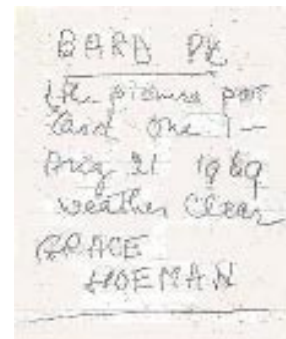 BARD PK
the picture post
Card one 1 —
Aug 21 1969
weather Clear
GRACE
HOEMAN